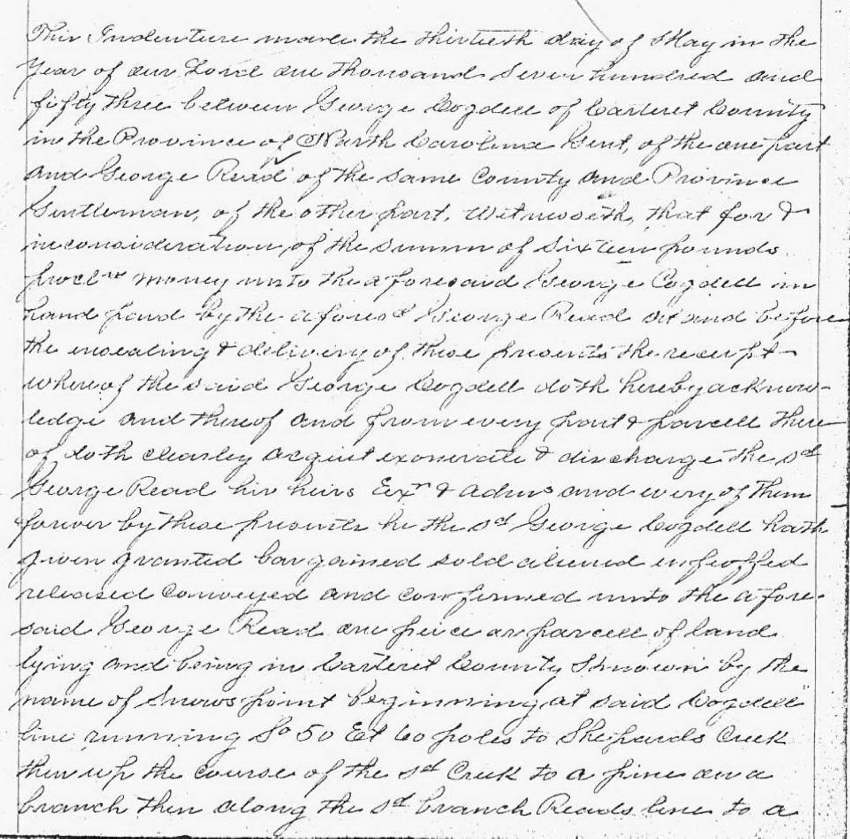 This Indenture made the thirtieth day of May in the
Year of our Lord one thousand seven hundred and
fifty three between George Cogdell of Carteret County
in the Province of North Carolina Gent, of the one part
and George Read of the same County and Province
Gentleman, of the other part, Witnesseth, that for &
in consideration of the summ of sixteen pounds
procl money unto the aforesaid George Cogdell in
hand paid by the aforesd George Read at and before
the ensealing & delivery of these presents the receipt
whereof the said George Cogdell doth hereby acknow-
ledge and thereof and from every part & parcell there
of doth clearley acquit exonerate & discharge the sd
George Read his heirs Exrs & Adms and every of them
forever by these presents he the sd George Cogdell hath
given granted bargained sold aliened enfeoffed
released conveyed and confirmed unto the afore-
said George Read one peice or parcell of land
lying and being in Carteret County & known by the
name of Snows point beginning at said Cogdell
line running So 50 Et 60 poles to Shepards Creek
then up the course of the sd Creek to a pine on a
branch then along the sd branch Reads line to a